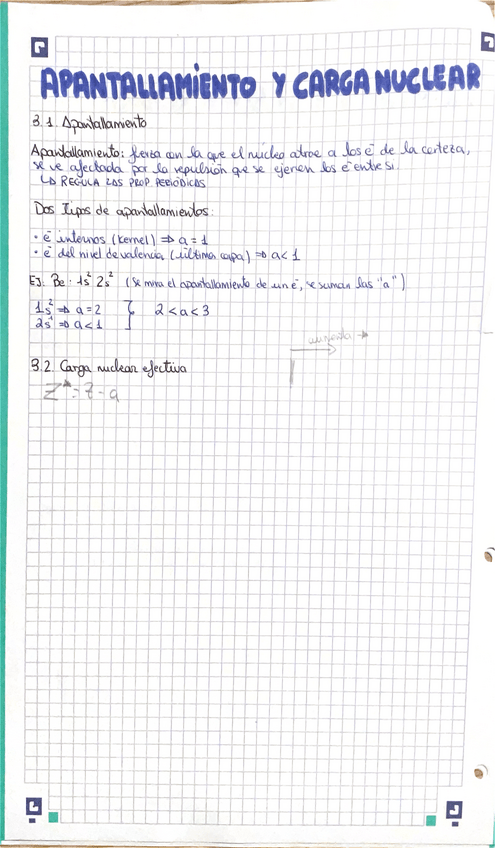 APANTALLAMIENTO Y CARGA NUCLEAR
3.1. Apantallamiento
Apantallamiento: fuerza con la que el núcleo atrae a los e⁻ de la corteza,
se ve afectada por la repulsión que se ejercen los e⁻ entre sí.
↳ REGULA LAS PROP PERIÓDICAS
Dos tipos de apantallamientos:
· e⁻ internos (kernel) ⇒ a = 1
· e⁻ del nivel de valencia (última capa) ⇒ a < 1
EJ: Be: 1s² 2s² (se mira el apantallamiento de un e⁻, se suman las "a")
1s² ⇒ a = 2 } 2 < a < 3
2s¹ ⇒ a < 1
aumenta →
3.2. Carga nuclear efectiva
Z* = Z - a